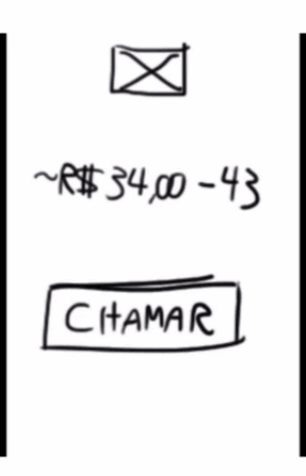 ~R$ 34,00 - 43
CHAMAR